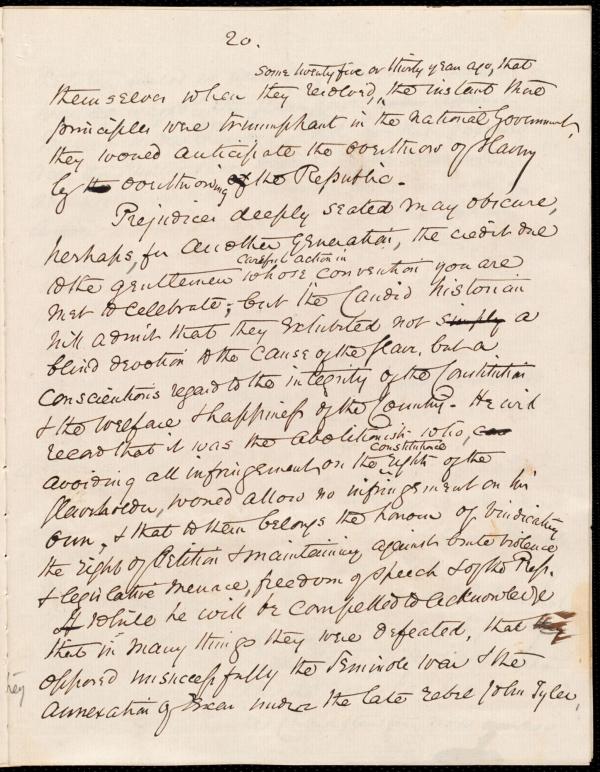 20.
some twenty five or thirty year ago, that
themselves when they resolved, ^ the instant their
principles were triumphant in the National Government,
they would anticipate the overthrow of Slavery
by the overthrowing of the Republic.
Prejudices deeply seated may obscure,
perhaps, for another Generation, the credit due
careful action in
to the gentlemen whose convention you are
met to celebrate; but the Candid historian
will admit that they exhibited not simply a
blind devotion to the cause of the slave, but a
Conscientious regard to the integrity of the Constitution
& the welfare & happiness of the Country. He will
record that it was the abolitionists who,
constitutional
avoiding all infringement on the ^ rights of the
slaveholder, would allow no infringement on his
own, & that to them belongs the honour of vindicating
the right of Petition & maintaining against brute violence
& legislative menace, freedom of speech & of the Press.
If While he will be compelled to acknowledge
that in many things they were defeated, that they
opposed unsuccessfully the Seminole War & the
annexation of Texas under the late rebel John Tyler,
rey